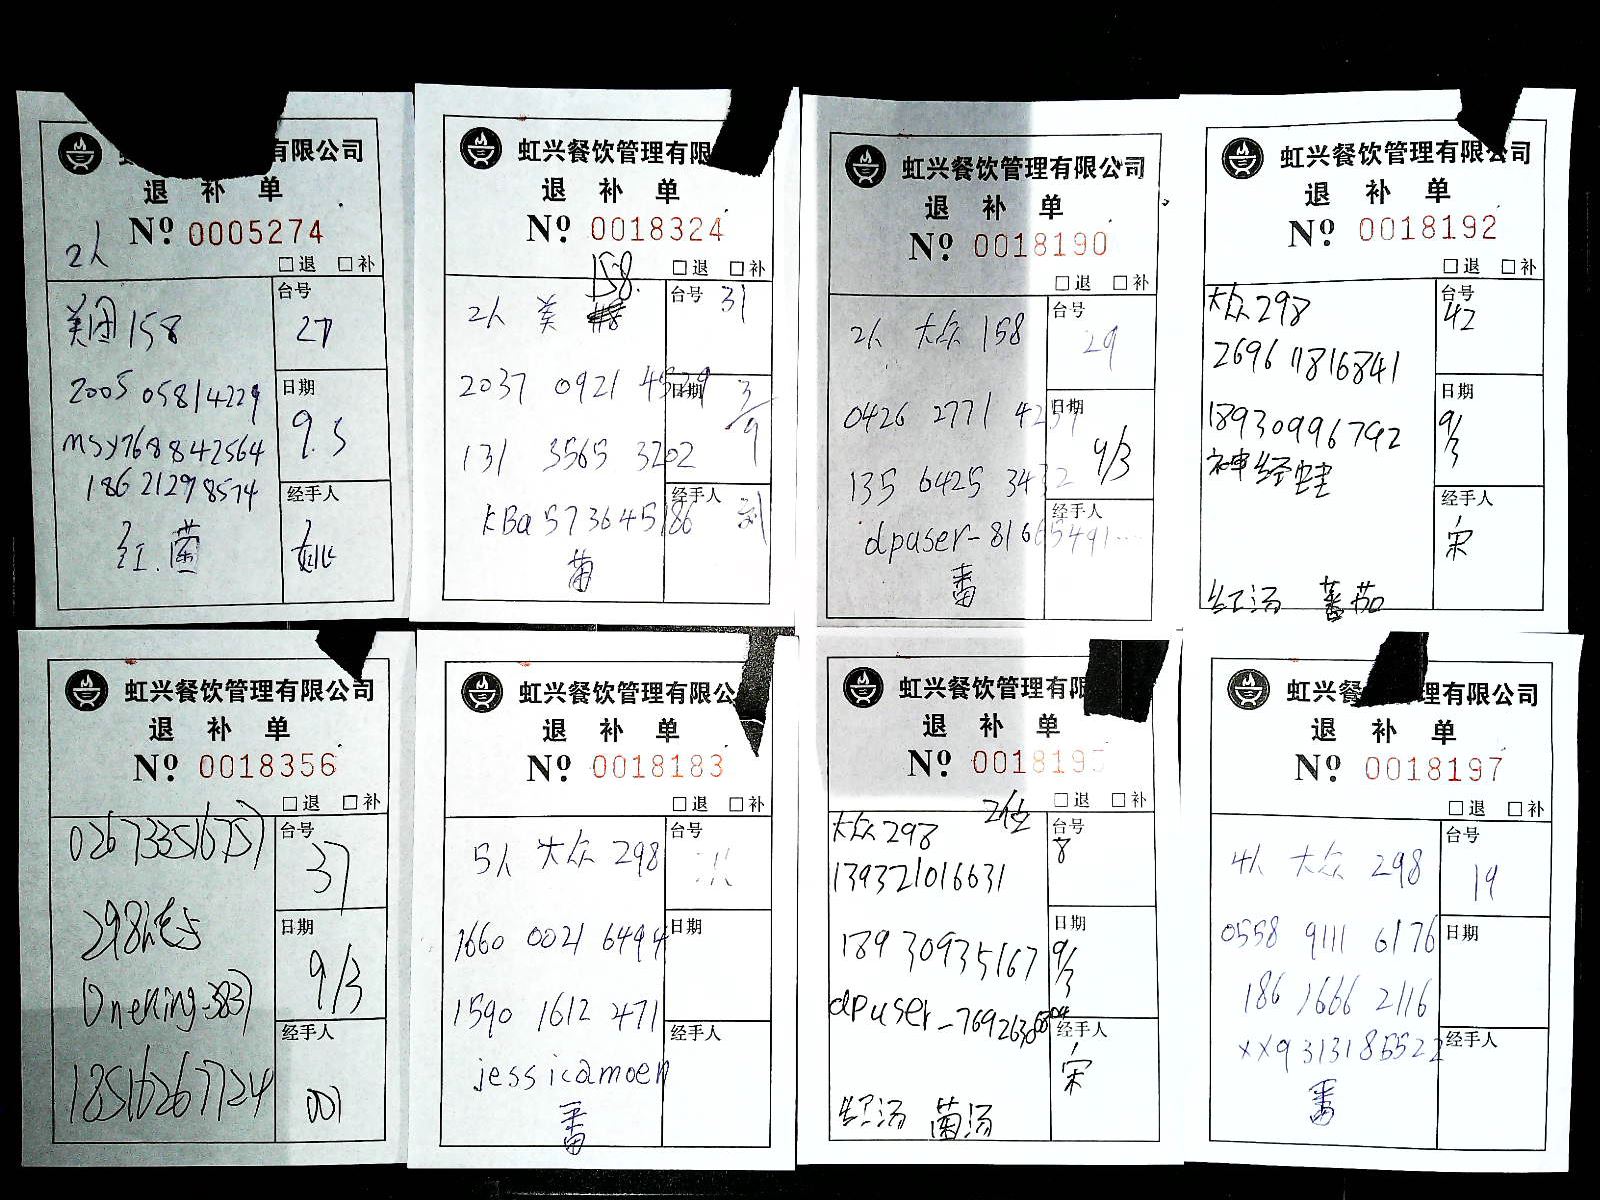 有限公司
退 补 单
2人
No. 0005274
□退 □补
美团158
台号
27
2005 05814229
日期
9.3
msy7688842564
18621298574
经手人
姚
红.菌
虹兴餐饮管理有限
退 补 单
No. 0018324
158.
□退 □补
2人 美
台号
31
2037 0921 4529
日期
3/9
131 3565 3202
经手人
刘
kBa573645186
菌
虹兴餐饮管理有限公司
退 补 单
No. 0018190
□退 □补
2人 大众 158
台号
29
0426 2771 4257
日期
9/3
135 6425 3432
经手人
dpuser-81665491....
番
虹兴餐饮管理有限公司
退 补 单
No. 0018192
□退 □补
大众298
台号
42
2696 11816841
日期
9/3
18930996792
神经蛙
经手人
宋
红汤 番茄
虹兴餐饮管理有限公司
退 补 单
No. 0018356
□退 □补
台号
37
298
日期
9/3
OneKing-3837
经手人
001
18516267724
虹兴餐饮管理有限公
退 补 单
No. 0018183
□退 □补
5人 大众 298
台号
1660 0021 6494
日期
1590 1612 471
经手人
jessicamoen
番
虹兴餐饮管理有限
退 补 单
No. 0018195
2位
□退 □补
大众298
台号
8
139321016631
日期
9/3
18930935167
dpuser_7692630
经手人
宋
红汤 菌汤
虹兴餐 管理有限公司
退 补 单
No. 0018197
□退 □补
4人 大众 298
台号
19
0558 9111 6176
日期
186 1666 2116
经手人
xxq313185522
番